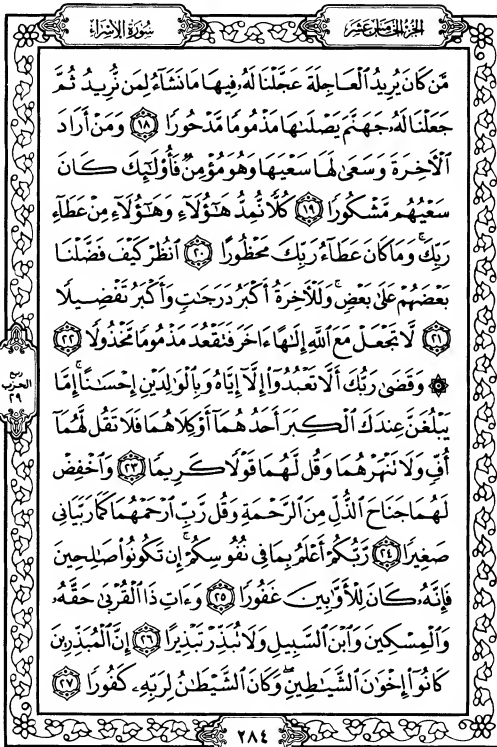 الجزء الخامس عشر
سورة الإسراء
مَّن كَانَ يُرِيدُ ٱلْعَاجِلَةَ عَجَّلْنَا لَهُۥ فِيهَا مَا نَشَآءُ لِمَن نُّرِيدُ ثُمَّ
جَعَلْنَا لَهُۥ جَهَنَّمَ يَصْلَىٰهَا مَذْمُومًا مَّدْحُورًا ١٨ وَمَنْ أَرَادَ
ٱلْأَخِرَةَ وَسَعَىٰ لَهَا سَعْيَهَا وَهُوَ مُؤْمِنٌ فَأُو۟لَـٰٓئِكَ كَانَ
سَعْيُهُم مَّشْكُورًا ١٩ كُلًّا نُّمِدُّ هَـٰٓؤُلَآءِ وَهَـٰٓؤُلَآءِ مِنْ عَطَآءِ
رَبِّكَ ۚ وَمَا كَانَ عَطَآءُ رَبِّكَ مَحْظُورًا ٢٠ ٱنظُرْ كَيْفَ فَضَّلْنَا
بَعْضَهُمْ عَلَىٰ بَعْضٍ ۚ وَلَلْأَخِرَةُ أَكْبَرُ دَرَجَـٰتٍ وَأَكْبَرُ تَفْضِيلًا
٢١ لَّا تَجْعَلْ مَعَ ٱللَّهِ إِلَـٰهًا ءَاخَرَ فَتَقْعُدَ مَذْمُومًا مَّخْذُولًا ٢٢
۞ وَقَضَىٰ رَبُّكَ أَلَّا تَعْبُدُوٓا۟ إِلَّآ إِيَّاهُ وَبِٱلْوَٰلِدَيْنِ إِحْسَـٰنًا ۚ إِمَّا
يَبْلُغَنَّ عِندَكَ ٱلْكِبَرَ أَحَدُهُمَآ أَوْ كِلَاهُمَا فَلَا تَقُل لَّهُمَآ
أُفٍّ وَلَا تَنْهَرْهُمَا وَقُل لَّهُمَا قَوْلًا كَرِيمًا ٢٣ وَٱخْفِضْ
لَهُمَا جَنَاحَ ٱلذُّلِّ مِنَ ٱلرَّحْمَةِ وَقُل رَّبِّ ٱرْحَمْهُمَا كَمَا رَبَّيَانِى
صَغِيرًا ٢٤ رَّبُّكُمْ أَعْلَمُ بِمَا فِى نُفُوسِكُمْ ۚ إِن تَكُونُوا۟ صَـٰلِحِينَ
فَإِنَّهُۥ كَانَ لِلْأَوَّٰبِينَ غَفُورًا ٢٥ وَءَاتِ ذَا ٱلْقُرْبَىٰ حَقَّهُۥ
وَٱلْمِسْكِينَ وَٱبْنَ ٱلسَّبِيلِ وَلَا تُبَذِّرْ تَبْذِيرًا ٢٦ إِنَّ ٱلْمُبَذِّرِينَ
كَانُوٓا۟ إِخْوَٰنَ ٱلشَّيَـٰطِينِ ۖ وَكَانَ ٱلشَّيْطَـٰنُ لِرَبِّهِۦ كَفُورًا ٢٧
ربع
الحزب
٢٩
٢٨٤